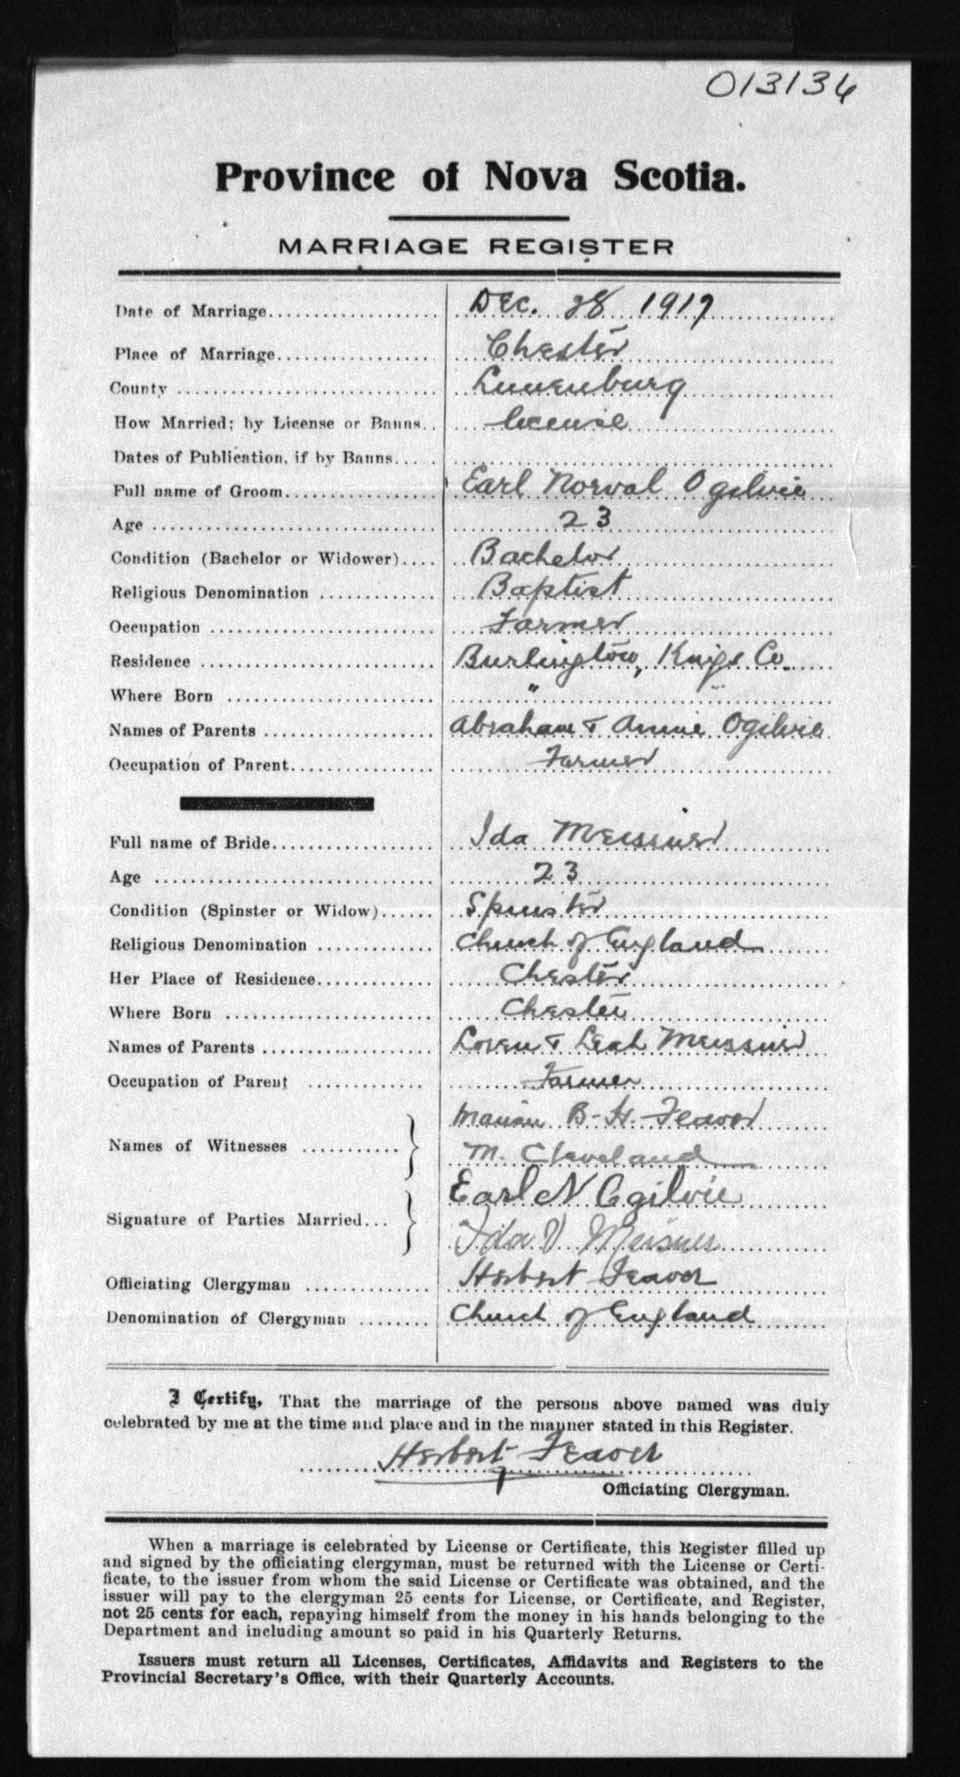 013134
Province of Nova Scotia.
MARRIAGE REGISTER
Date of Marriage................... Dec. 28 1917
Place of Marriage................. Chester
County ............................ Lunenburg
How Married; by License or Banns.. license
Dates of Publication, if by Banns.....
Full name of Groom................ Earl Norval Ogilvie
Age ............................... 23
Condition (Bachelor or Widower).... Bachelor
Religious Denomination ............. Baptist
Occupation ......................... Farmer
Residence .......................... Burlington, Kings Co.
Where Born ....................... " "
Names of Parents ................... Abraham & Annie Ogilvie
Occupation of Parent................. Farmer
Full name of Bride.................. Ida Meissner
Age .............................. 23
Condition (Spinster or Widow)...... Spinster
Religious Denomination ............. Church of England
Her Place of Residence............. Chester
Where Born ....................... Chester
Names of Parents ................... Loren & Leah Meissner
Occupation of Parent ............. Farmer
Marian B. H. Feaver
Names of Witnesses ...........
M. Cleveland
Earl N Ogilvie
Signature of Parties Married...
Ida V Meisner
Officiating Clergyman .............. Herbert Feaver
Denomination of Clergyman ........ Church of England
I Certify, That the marriage of the persons above named was duly
celebrated by me at the time and place and in the manner stated in this Register.
Herbert Feaver
Officiating Clergyman.
When a marriage is celebrated by License or Certificate, this Register filled up
and signed by the officiating clergyman, must be returned with the License or Certi-
ficate, to the issuer from whom the said License or Certificate was obtained, and the
issuer will pay to the clergyman 25 cents for License, or Certificate, and Register,
not 25 cents for each, repaying himself from the money in his hands belonging to the
Department and including amount so paid in his Quarterly Returns.
Issuers must return all Licenses, Certificates, Affidavits and Registers to the
Provincial Secretary's Office, with their Quarterly Accounts.